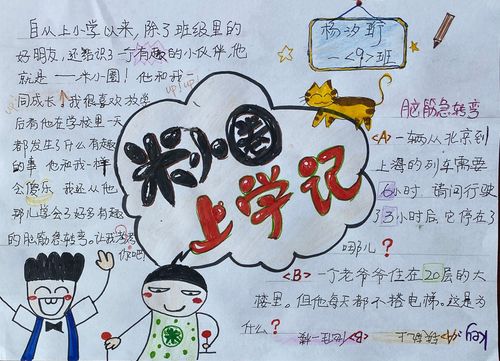 自从上小学以来，除了班级里的
好朋友，还结识了一个有趣的小伙伴，他
就是——米小圈！他和我一
同成长，我很喜欢放学
后看他在学校里一天
都发生了什么有趣
的事，他和我一样
会傻乐，我还从他
那儿学会了好多有趣
的脑筋急转弯。让我考考
你吧！
up!
up!up!
米小圈
上学记
杨汐珩
一<9>班
脑筋急转弯
<A>一辆从北京到
上海的列车需要
6小时，请问行驶
了3小时后，它停在了
哪儿？
<B>一个老爷爷住在20层的大
楼里。但他每天都不搭电梯。这是为
什么？
Key:
<A>铁轨上
<B>